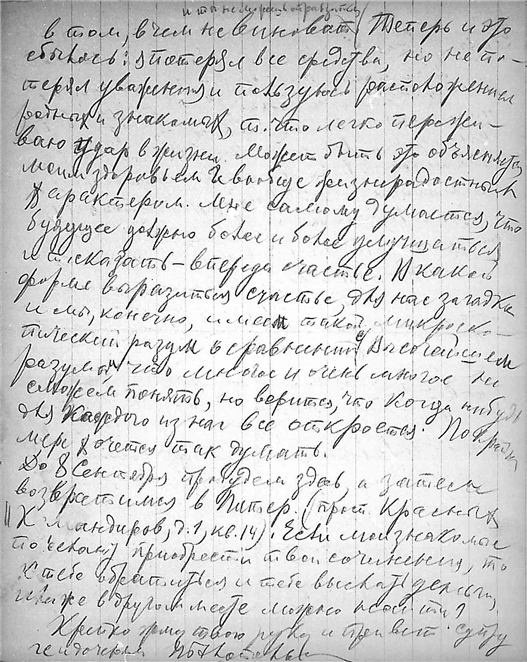 и ты не можешь оправдаться
в том, в чем не виноват. Теперь и это
сбылось: я потерял все средства, но не по-
терял уважения и пользуюсь расположением
родных и знакомых, т. что легко пережи-
ваю удар в жизни. Может быть это объясняется
моим здоровьем и вообще жизнерадостным
характером. Мне самому думается, что
будущее должно более и более улучшаться
и т. сказать – впереди счастье. В какой
форме выразиться счастье, для нас загадка
и мы, конечно, имеем такой микроско-
пический разум в сравнении с Высочайшем
разумом, что многое и очень многое не
сможем понять, но верится, что когда нибудь
для каждого из нас все откроется. По крайней
мере хочется так думать.
До 8 Сентября пробудем здесь, а затем
возвратимся в Питер. (просп. Красных
Командиров, д. 1, кв. 14). Если мои знакомые
пожелают приобрести твои сочинения, то
к тебе обратиться и тебе выслать деньги,
или же в другом месте можно найти?
Крепко жму твою руку и привет